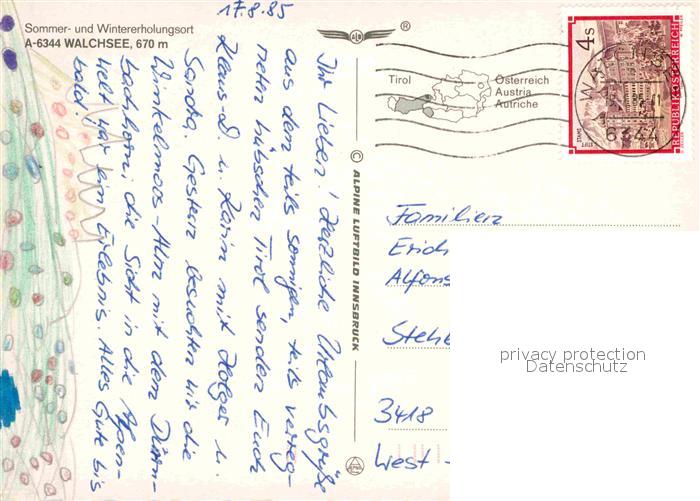 Sommer- und Wintererholungsort
A-6344 WALCHSEE, 670 m
17.8.85
Ihr Lieben! Herzliche Urlaubsgrüße
aus dem teils sonnigen, teils verreg-
neten hübschen Tirol senden Euch
Klaus-D u. Karin mit Holger u.
Sandra. Gestern besuchten wir die
Winkelmoos-Alm mit dem Dürrn-
bachhorn; die Sicht in die Alpen-
welt war ein Erlebnis. Alles Gute bis
bald!
ALPINE LUFTBILD INNSBRUCK
©
®
Tirol
Österreich
Austria
Autriche
4 S
REPUBLIK ÖSTERREICH
STIFT STAMS
6344
Familien
Erich
Alfons
3418
West -
privacy protection
Datenschutz